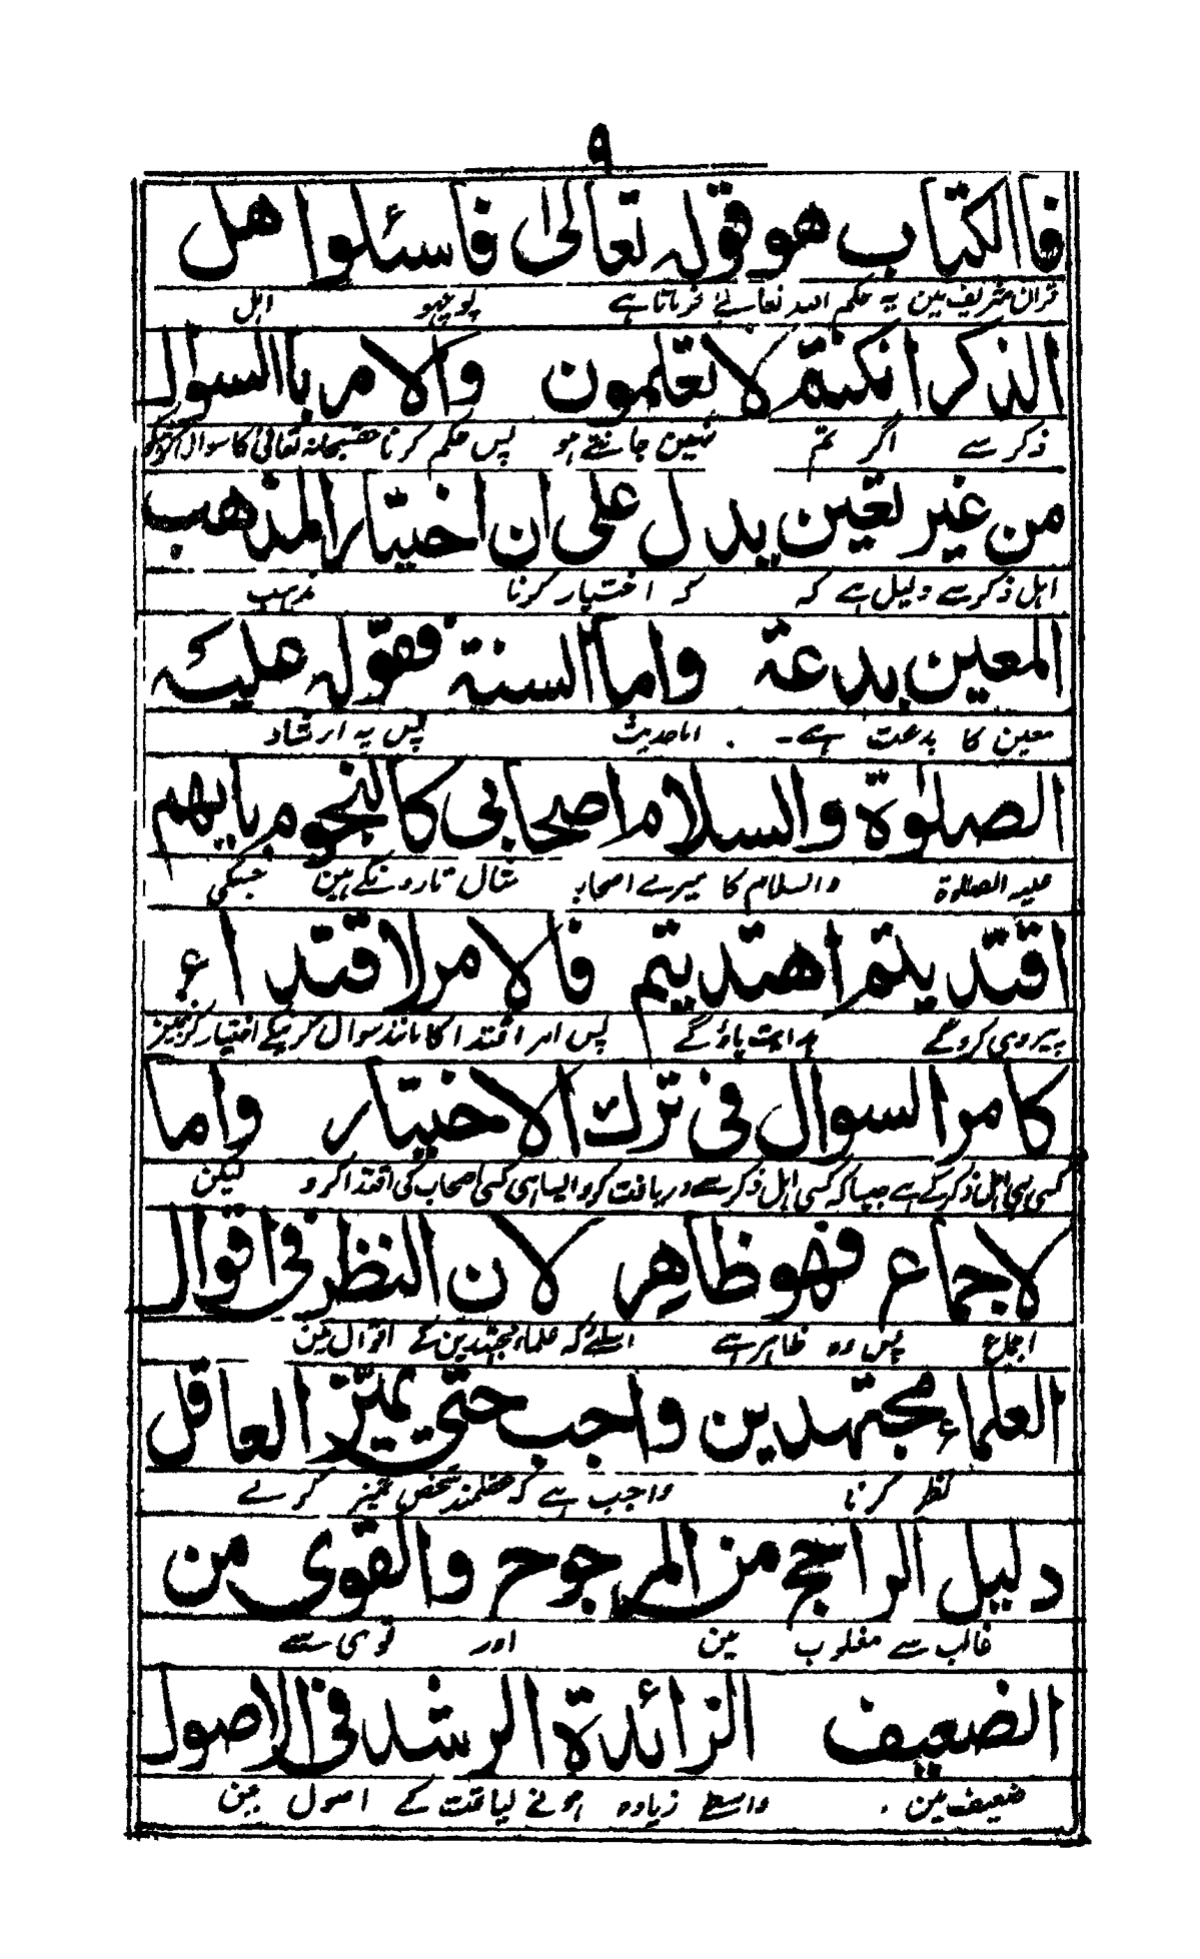 ٩
فاالکتاب هو قوله تعالیٰ فاسئلوا هل
قرآن شریف مین یہ حکم اللہ تعالےٰ فرماتا ہے پوچھو اہل
الذکر انکنتم لا تعلمون والامر باالسوال
ذکر سے اگر تم نہین جانتے ہو پس حکم کرنا تعالیٰ کا سوال
من غیر تعین یدل علی ان اختیار المذهب
اہل ذکر سے دلیل ہے کہ کہ اختیار کرنا مذہب
المعین بدعة واما السنة فقوله علیه
معین کا بدعت ہے۔ اما حدیث پس یہ ارشاد
الصلوٰة والسلام اصحابی کالنجوم بایهم
علیہ الصلوٰة والسلام کا میرے اصحاب مثال تارونکے ہین جسکی
اقتدیتم اهتدیتم فالامر لاقتداء
پیروی کروگے ہدایت پاؤگے پس امر اقتدا کا مانند سوال کرنیکے اختیار
کامر السوال فی ترك الاختیار واما
کسی اہل ذکر کے ہے جیسا کہ کسی اہل ذکر سے دریافت کرو ایسا ہی کسی اصحاب کی اقتدا کرو لیکن
لاجماع فهو ظاهر لان النظر فی اقوال
اجماع پس وہ ظاہر ہے اسلئے کہ علماء مجتہدین کے اقوال مین
العلماء مجتهدین واجب حتی یمیّز العاقل
نظر کرنا واجب ہے کہ عقلمند شخص تمیز کرلے
دلیل الراجح من المرجوح والقوی من
غالب سے مغلوب مین اور قوی سے
الضعیف الزائدة الرشد فی الاصول
ضعیف مین . واسطے زیادہ ہونے لیاقت کے اصول مین